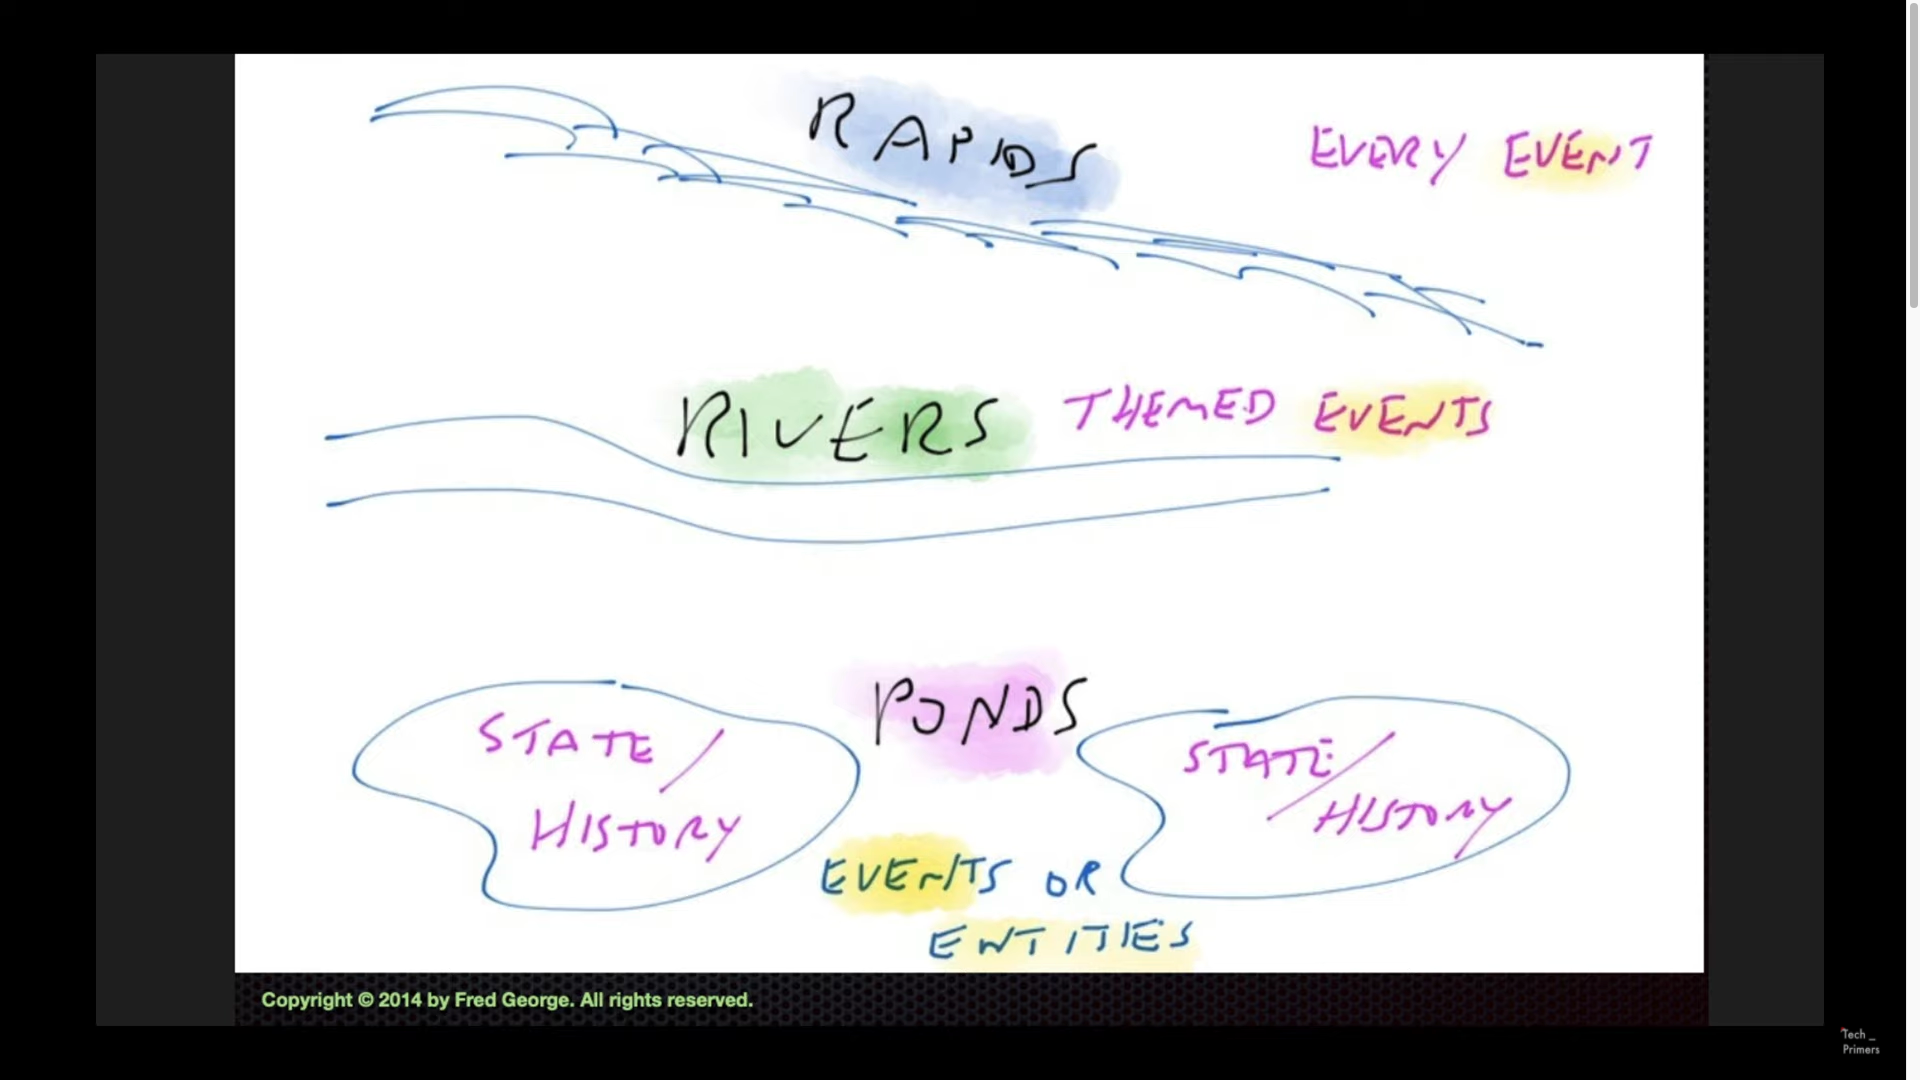 RAPIDS
EVERY EVENT
RIVERS
THEMED EVENTS
PONDS
STATE/
HISTORY
STATE/
HISTORY
EVENTS OR
ENTITIES
Copyright © 2014 by Fred George. All rights reserved.
Tech _
Primers